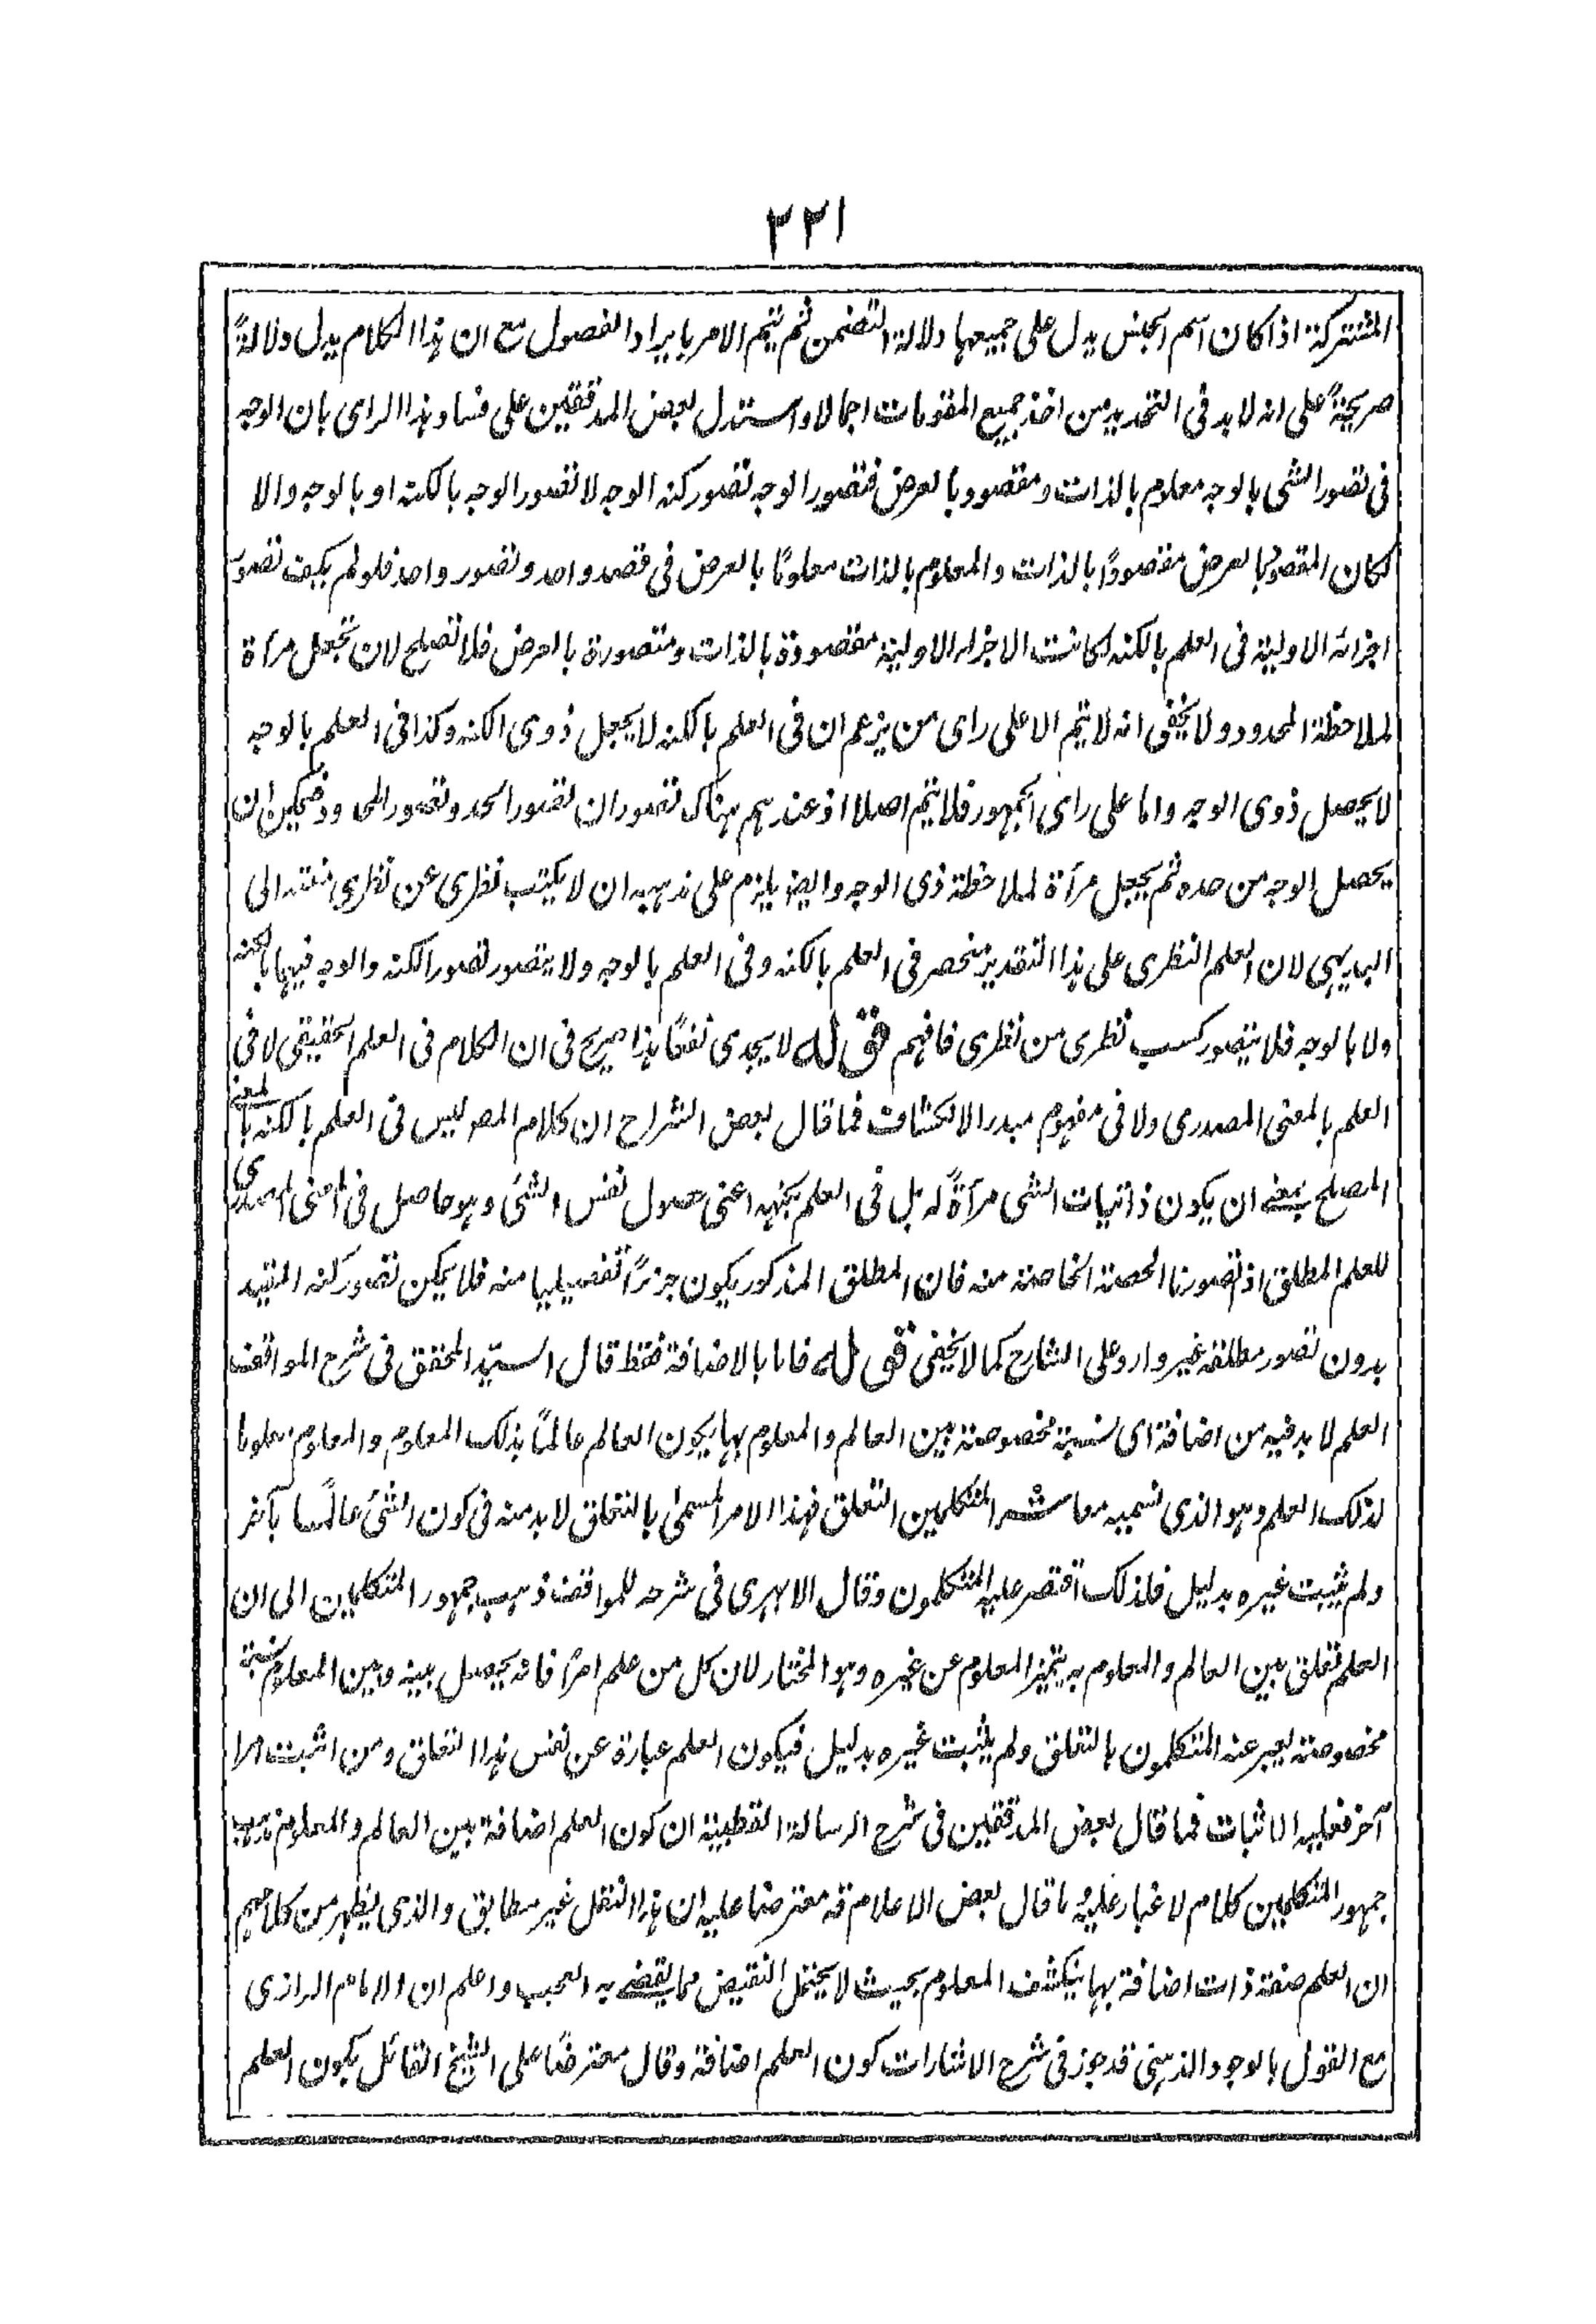 ٢٢١
المشتركة اذا كان اسم الجنس يدل على جميعها دلالة التضمن ثم يتم الامر بايراد الفصول مع ان هذا الكلام يدل دلالةً
صريحةً على انه لا بد فى التحديد من اخذ جميع المقومات اجمالا واستدل بعض المدققين على فساد هذا الراى بان الوجه
فى تصور الشى بالوجه معلوم بالذات ومقصود بالعرض فتصور الوجه تصور كنه الوجه لا تصور الوجه بالكنه او بالوجه والا
لكان المقصود بالعرض مقصودًا بالذات والمعلوم بالذات معلومًا بالعرض فى قصد واحد وتصور واحد فلو لم يكف تصور
اجزائه الاولية فى العلم بالكنه لكانت الاجزاء الاولية مقصودة بالذات ومتصورة بالعرض فلا تصلح لان تجعل مرآة
لملاحظة المحدود ولا يخفى انه لا يتم الا على راى من يزعم ان فى العلم بالكنه لا يحصل ذوى الكنه وكذا فى العلم بالوجه
لا يحصل ذوى الوجه واما على راى الجمهور فلا يتم اصلا اذ عندهم هناك تصوران تصور الحد وتصور المحدود فيمكن ان
يحصل الوجه من حده ثم يجعل مرآة لملاحظة ذى الوجه وايضا يلزم على مذهبه ان لا يكتسب نظرى عن نظرى منته الى
البديهى لان العلم النظرى على هذا التقدير منحصر فى العلم بالكنه وفى العلم بالوجه ولا يتصور تصور الكنه والوجه فيهما بالكنه
ولا بالوجه فلا يتصور كسب نظرى من نظرى فافهم قوله لا يجدى نفعًا هذا صريح فى ان الكلام فى العلم الحقيقى لا فى
العلم بالمعنى المصدرى ولا فى مفهوم مبدء الانكشاف فما قال بعض الشراح ان كلام المصرليس فى العلم بالكنه بالمعنى
المصطلح بمعنى ان يكون ذاتيات الشى مرآةً له بل فى العلم بكنهه اعنى حصول نفس الشئ وهو حاصل فى المعنى المصدرى
للعلم المطلق اذ تصورنا الحصة الخاصة منه فان المطلق المذكور يكون جزءًا تفصيليا منه فلا يمكن تصور كنه المقيد
بدون تصور مطلقه غير وارد على الشارح كما لا يخفى قوله فاما بالاضافة فقط قال السيّد المحقق فى شرح المواقف
العلم لا بد فيه من اضافة اى نسبة مخصوصة بين العالم والمعلوم بها يكون العالم عالمًا بذلك المعلوم والمعلوم معلوما
لذلك العلم وهو الذى نسميه معاشر المتكلمين التعلق فهذا الامر المسمى بالتعلق لا بد منه فى كون الشئ عالمًا بآخر
ولم يثبت غيره بدليل فلذلك اقتصر عليه المتكلمون وقال الابهرى فى شرحه للمواقف ذهب جمهور المتكلمين الى ان
العلم تعلق بين العالم والمعلوم به يتميز المعلوم عن غيره وهو المختار لان كل من علم امرًا فانه يحصل بينه وبين المعلوم نسبة
مخصوصة يعبر عنه المتكلمون بالتعلق ولم يثبت غيره بدليل فيكون العلم عبارة عن نفس هذا التعلق ومن اثبت امرا
آخر فعليه الاثبات فما قال بعض المدققين فى شرح الرسالة القطبية ان كون العلم اضافة بين العالم والمعلوم مذهب
جمهور المتكلمين كلام لا غبار عليه وما قال بعض الاعلام قه معترضا عليه ان هذا النقل غير مطابق والذى يظهر من كلامهم
ان العلم صفة ذات اضافة بها ينكشف المعلوم بحيث لا يحتمل النقيض مما يقضى به العجب واعلم ان الامام الرازى
مع القول بالوجود الذهنى قد جوز فى شرح الاشارات كون العلم اضافة وقال معترضًا على الشيخ القائل بكون العلم